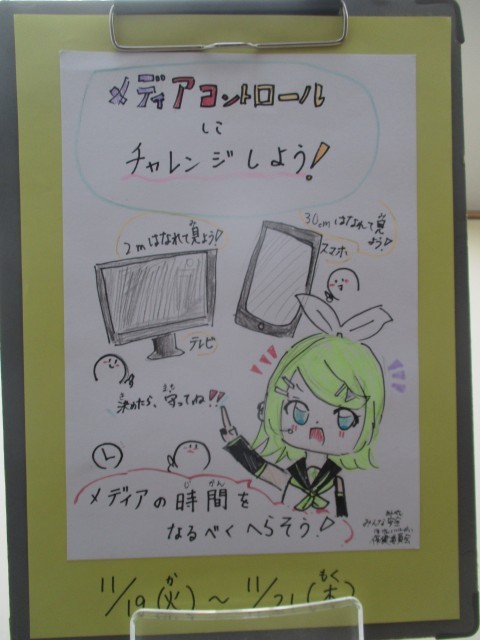 メディアコントロール
に
チャレンジしよう!
2mはなれて見よう!
30cmはなれて見
よう!
スマホ
テレビ
決めたら、守ってね!!
メディアの時間を
なるべくへらそう!
みんな
保健委員会
11/19(火)~11/21(木)